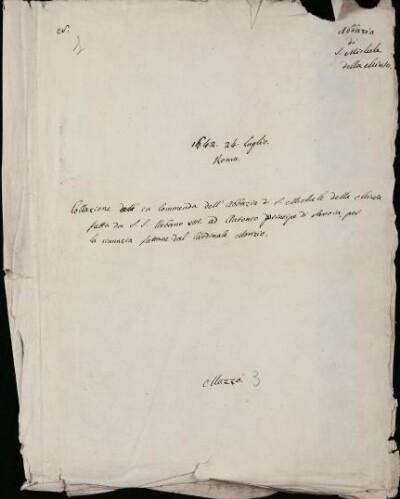 Abbazia
di
S. Michele
della Chiusa
1642. 24. Luglio.
Roma.
Collazione in Commenda dell'Abbazia di S. Michele della Chiusa
fatta da S. S. Urbano VIII. ad Antonio Principe di Savoia, per
la rinuncia fattane dal Cardinale Maurizio.
Mazzo 3